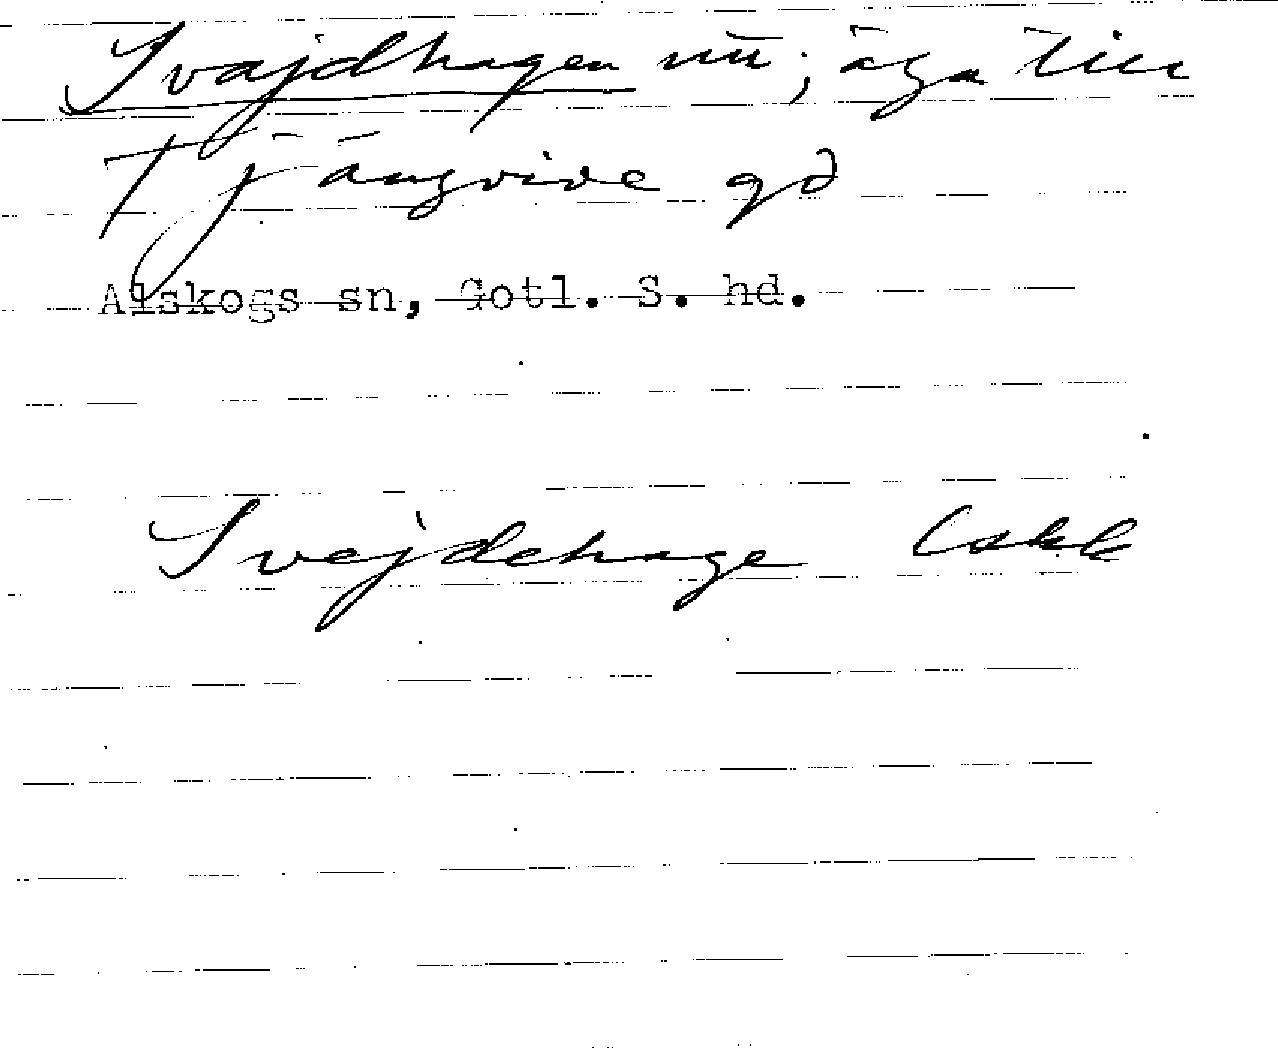 Svajdhagen nu; äga till
Tjängvide gd
Alskogs sn, Gotl. S. hd.
Svejdehage